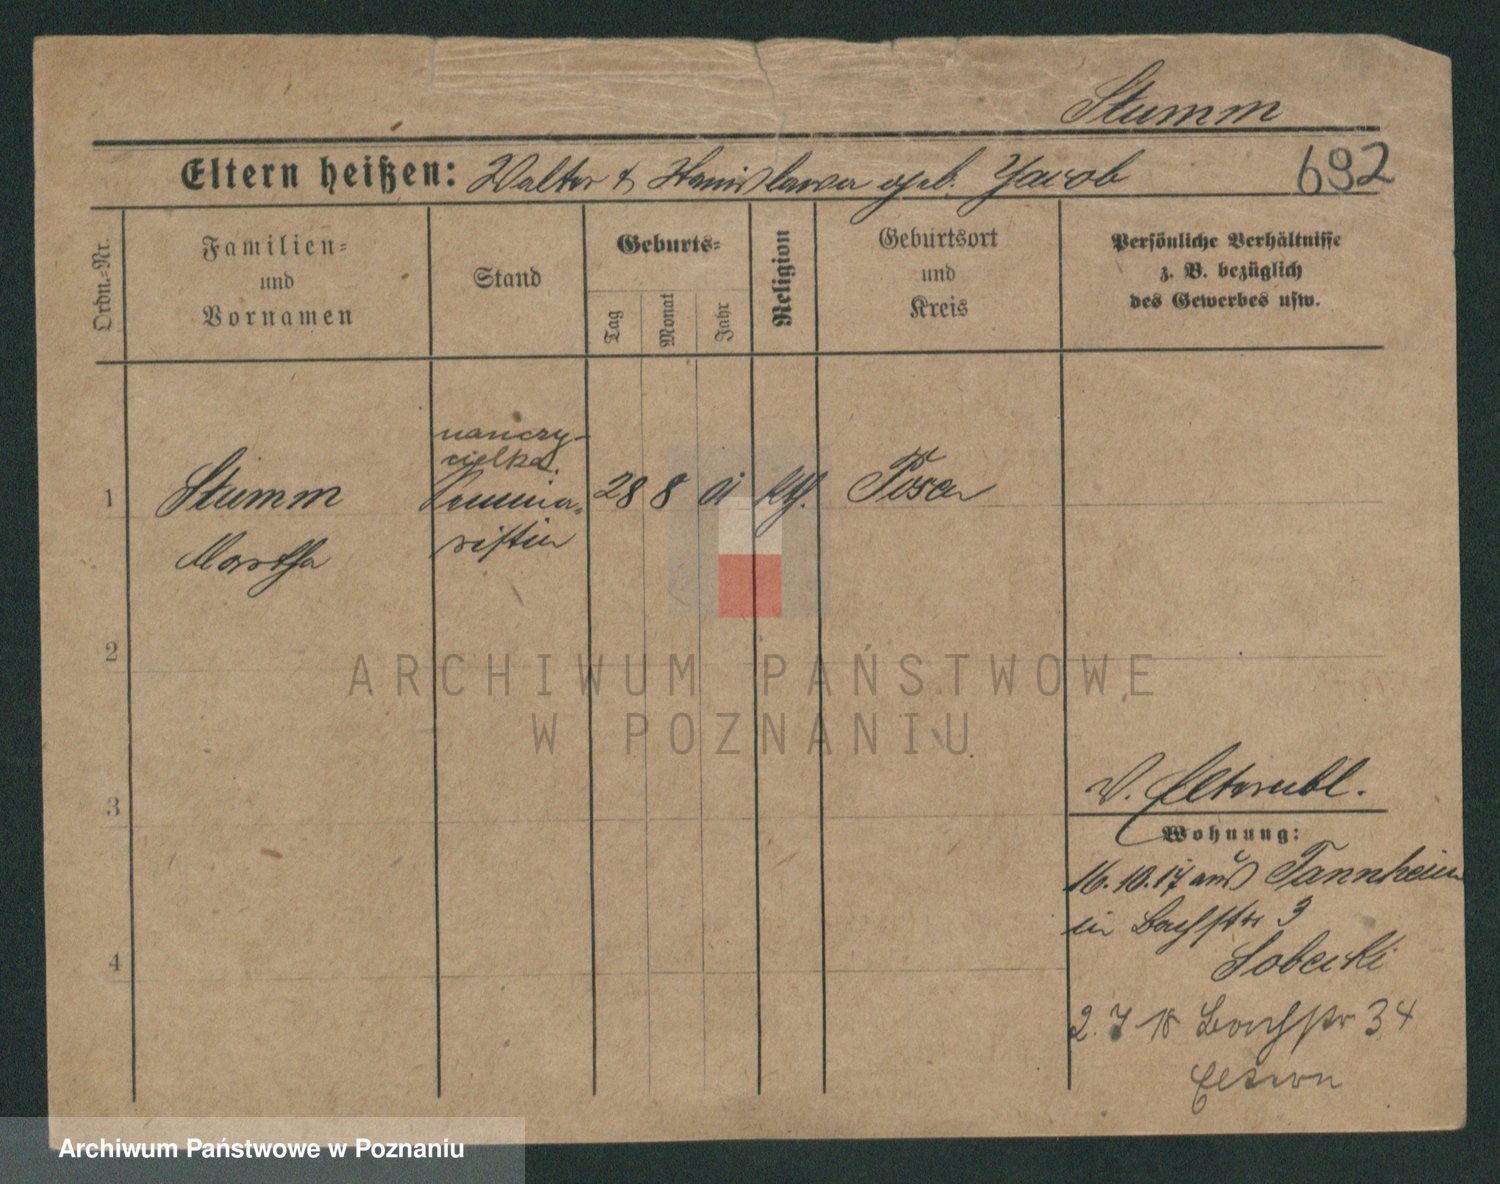 Stumm
Eltern heißen: Walter & Stanislawa geb. Jacob
692
Ordn.-Nr.
Familien-
und
Vornamen
Stand
Geburts-
Tag
Monat
Jahr
Religion
Geburtsort
und
Kreis
Persönliche Verhältnisse
z. B. bezüglich
des Gewerbes usw.
nauczy-
cielka.
1 Stumm Semina- 28 8 01 kth. Posen
Martha ristin
2
3
4
V. Elternbl.
Wohnung:
16.10.17 aus Tannheim
in Bachstr 3
Sobecki
2.7 18 Bachstr 34
Eltern
ARCHIWUM PAŃSTWOWE
W POZNANIU
Archiwum Państwowe w Poznaniu